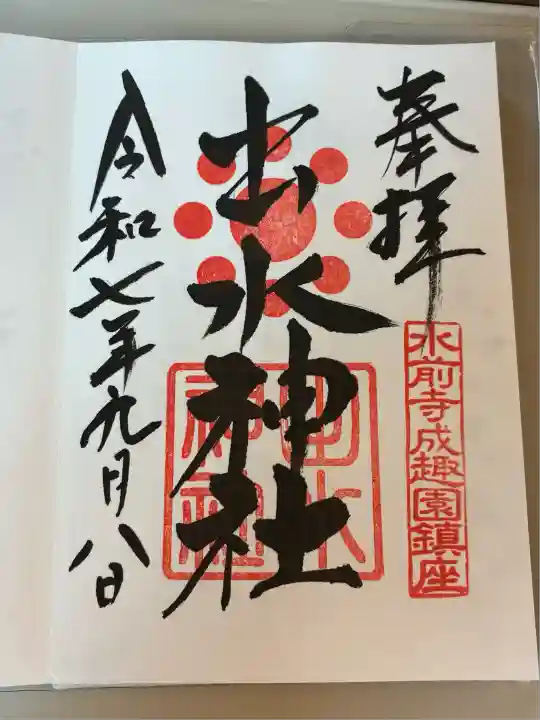 奉拝
水前寺成趣園鎮座
出水神社
出水
神社
令和七年九月八日